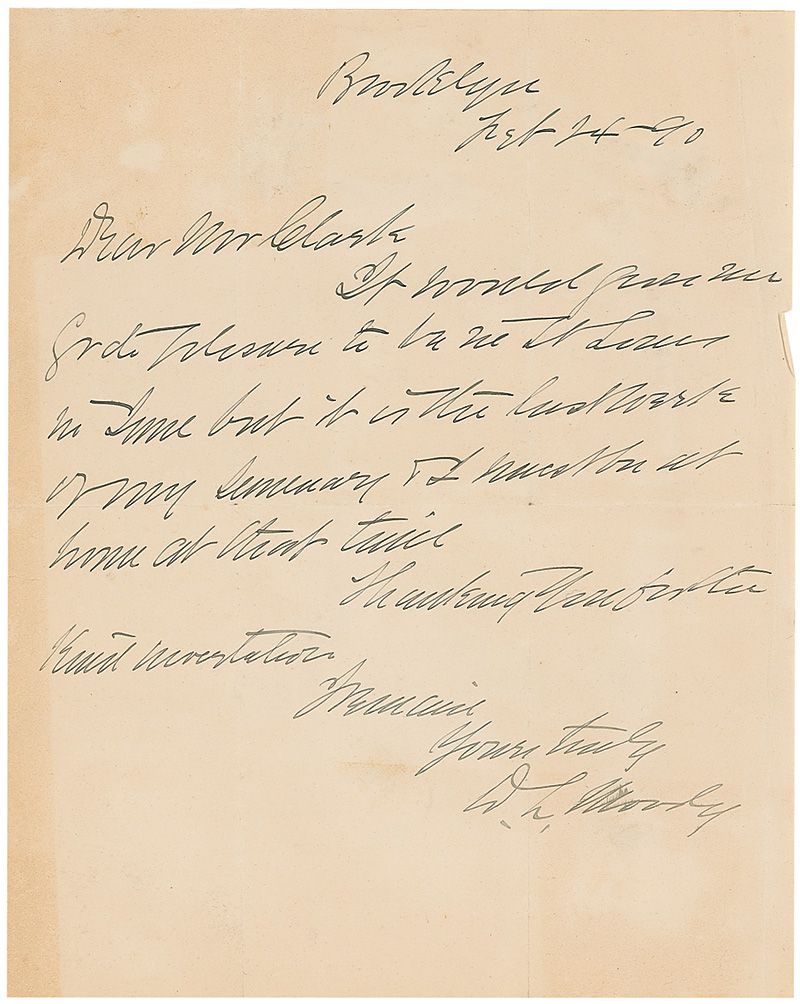 Brooklyn
Feb 24-90
Dear Mr Clark
It would give me
grate plesure to be in St Louis
in June but it is the last week
of my Semenary & I must be at
home at that time
Thanking you for the
kind invertation
I remain
Yours truly
D. L. Moody